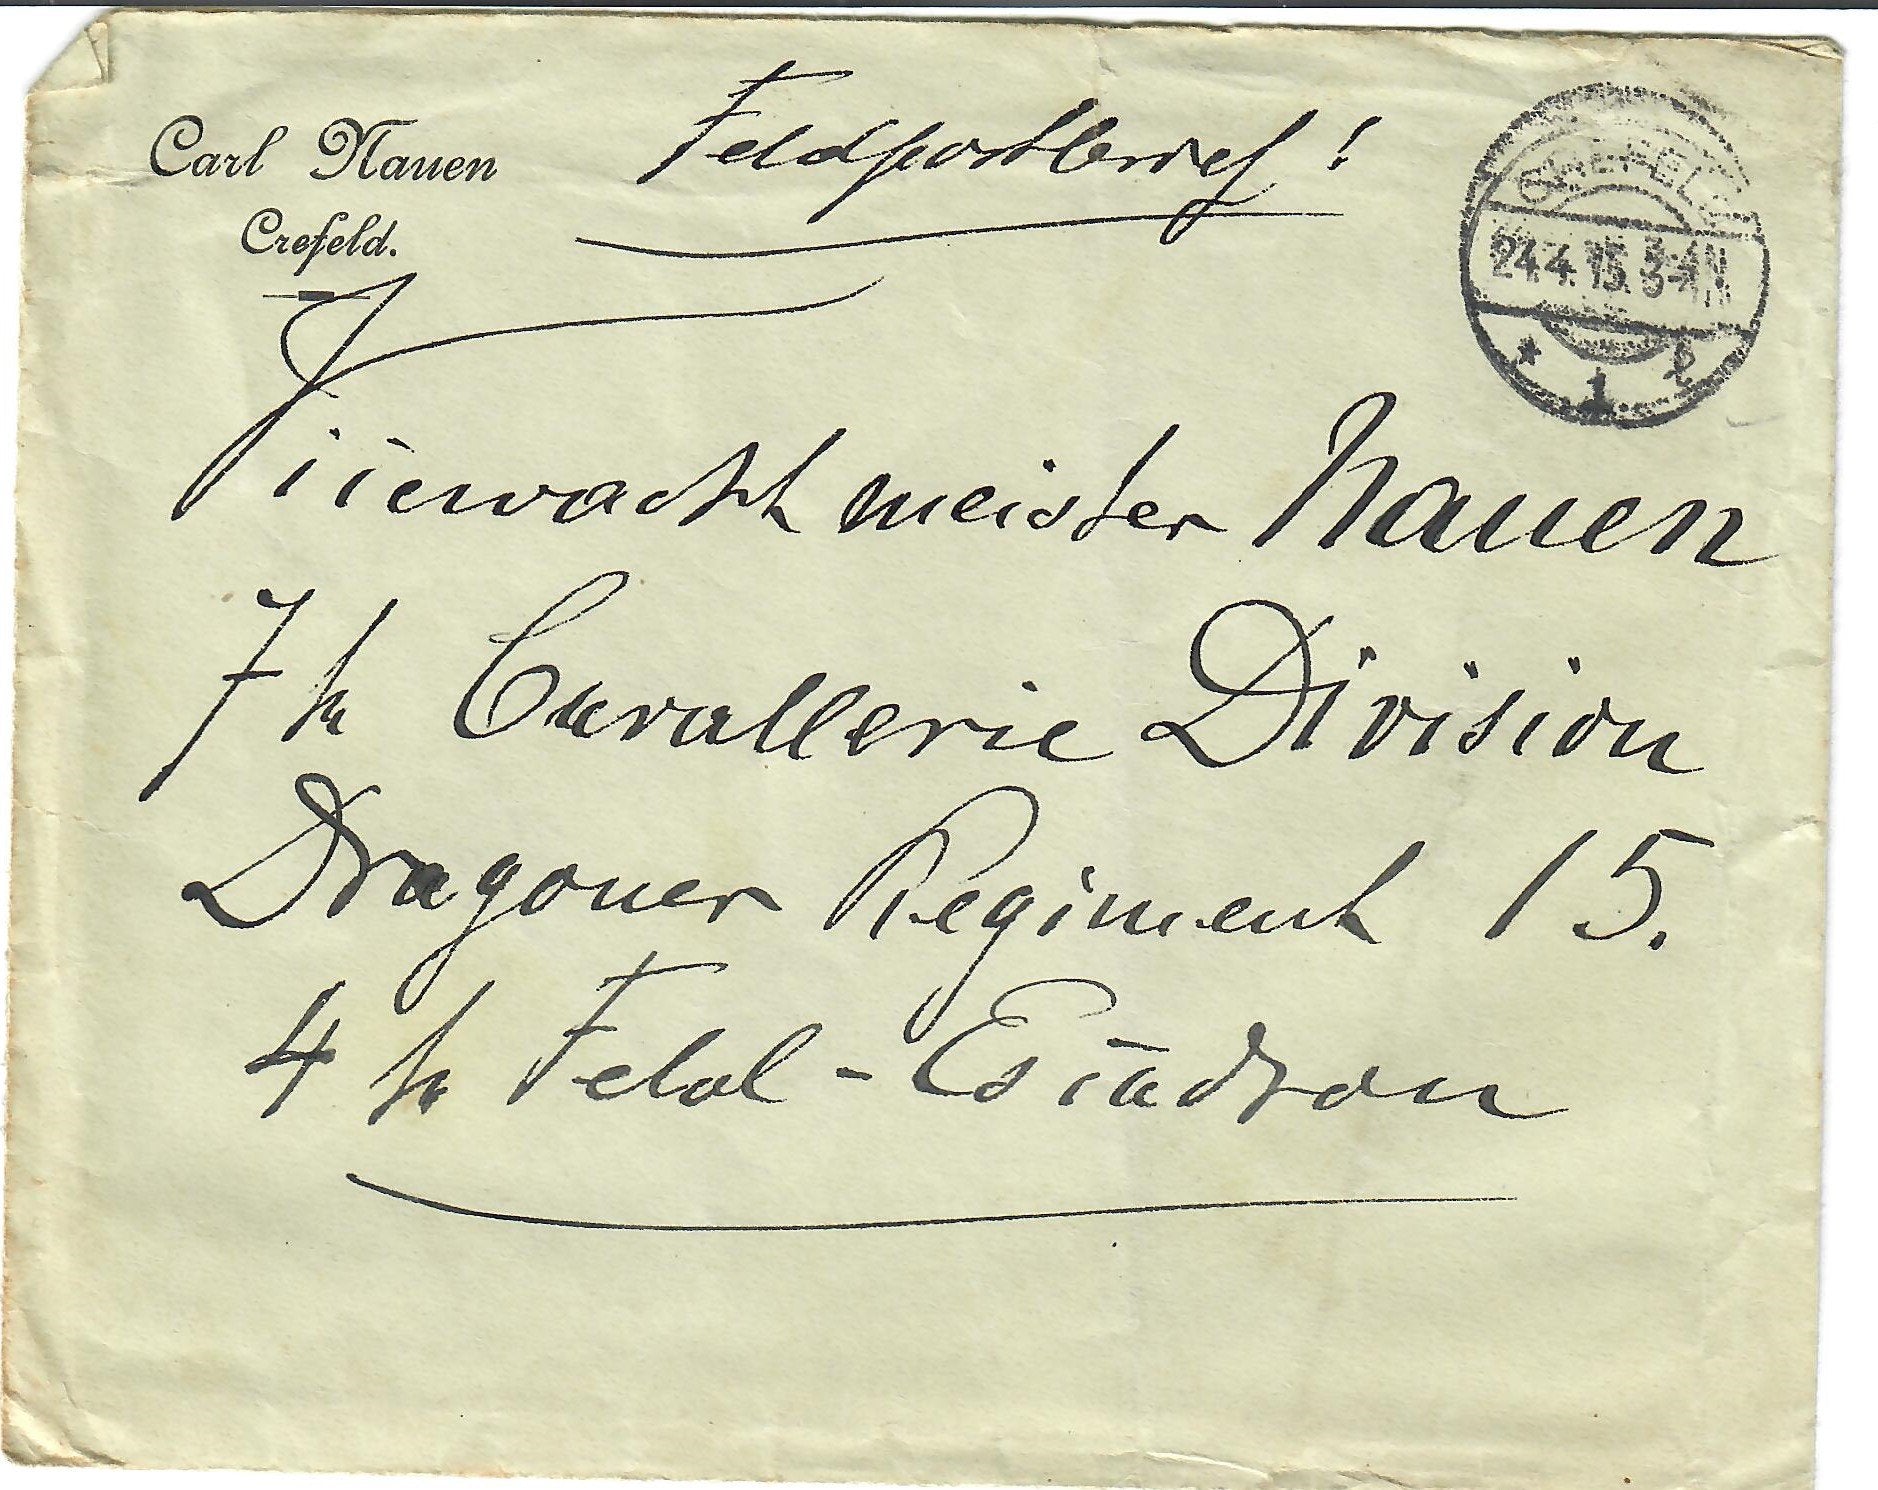 Carl Nauen
Crefeld.
Feldpostbrief!
CREFELD
24.4.15. 3-4N
* 1
Vicewachtmeister Nauen
7te Cavallerie Division
Dragoner Regiment 15.
4te Feld-Escadron